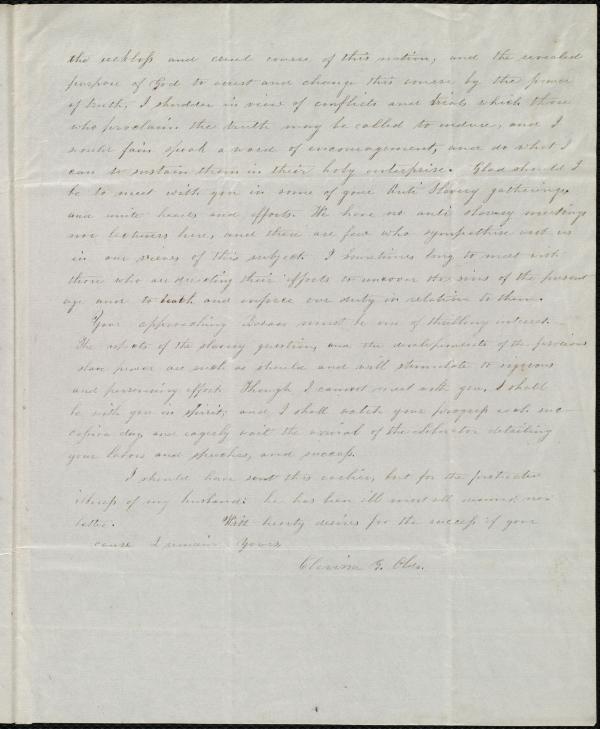 the reckless and cruel course of this nation, and the revealed
purpose of God to arrest and change this course by the power
of truth, I shudder in view of conflicts and trials which those
who proclaim the truth may be called to endure, and I
would fain speak a word of encouragement, and do what I
can to sustain them in their holy enterprise. Glad should I
be to meet with you in some of your Anti Slavery gatherings
and unite hearts and efforts. We have no anti slavery meetings
nor lectures here, and there are few who sympathise with us
in our views of this subject. I sometimes long to meet with
those who are directing their efforts to uncover the sins of the present
age and to teach and inforce our duty in relation to them.
Your approaching Bazaar must be one of thrilling interest.
The aspects of the slavery question, and the developements of the ferocious
slave power are such as should and will stimulate to vigorous
and persevering effort. Though I cannot meet with you, I shall
be with you in spirit; and I shall watch your progress each suc-
cessive day, and eagerly wait the arrival of the liberator detailing
your labors and speeches, and success.
I should have sent this earlier, but for the protracted
illness of my husband. he has been ill most all summer, now
better. With hearty desires for the success of your
cause I remain Yours
G. Olds.